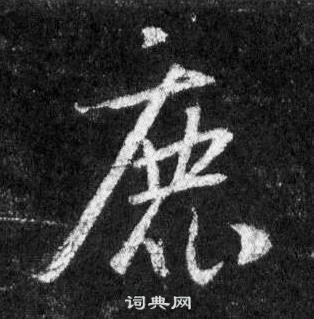 鹿
词典网